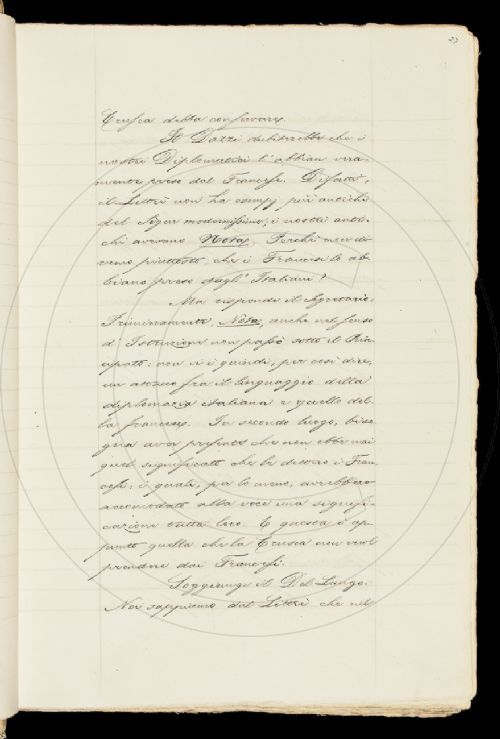 23
Crusca debba conservare.
Il Dazzi dubiterebbe che i
nostri Diplomatici l'abbian vera-
mente preso dal Francese. Difatti,
il Littré non ha esempj più antichi
del Segur modernissimo; i nostri anti-
chi avevano Nota. Perchè non di-
remo piuttosto che i Francesi lo ab-
biano preso dagl' Italiani?
Ma risponde il Segretario.
Primieramente, Nota, anche nel senso
d' Istruzioni non passò sotto il Prin-
cipato: non vi è quindi, per così dire,
un attacco fra il linguaggio della
diplomazia italiana e quello del-
la francese. In secondo luogo, biso-
gna aver presente che non ebbe mai
quel significato che le dettero i Fran-
cesi; i quali, per lo meno, avrebbero
accomodato alla voce una signifi-
cazione tutta loro. E questa è ap-
punto quella che la Crusca non vuol
prendere dai Francesi.
Soggiunge il Del Lungo.
Noi sappiamo dal Littré che nel